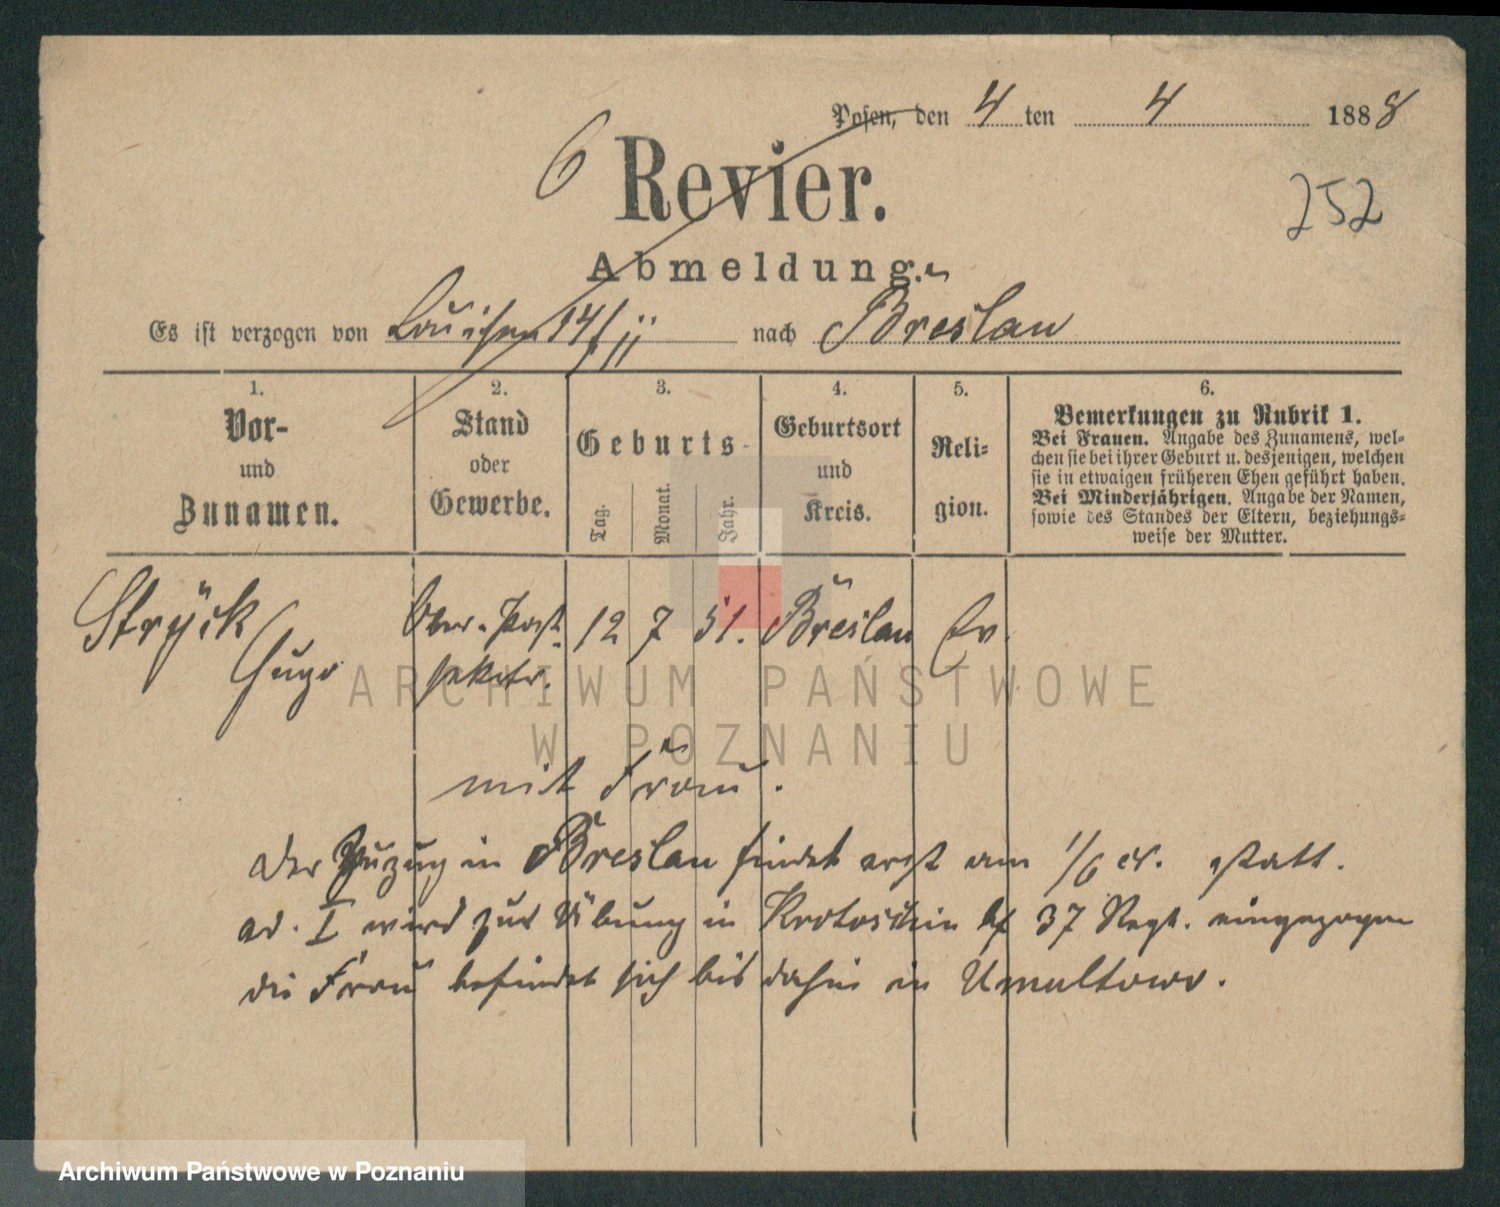 Posen, den 4 ten 4 1888
6 Revier.
252
Abmeldung.
Es ist verzogen von Louisen 14/ii nach Breslau
1.
Vor-
und
Zunamen.
2.
Stand
oder
Gewerbe.
3.
Geburts-
Tag.
Monat.
Jahr.
4.
Geburtsort
und
Kreis.
5.
Reli-
gion.
6.
Bemerkungen zu Rubrik 1.
Bei Frauen. Angabe des Zunamens, wel-
chen sie bei ihrer Geburt u. desjenigen, welchen
sie in etwaigen früheren Ehen geführt haben.
Bei Minderjährigen. Angabe der Namen,
sowie des Standes der Eltern, beziehungs-
weise der Mutter.
Stryck Ober-Post- 12 7 51. Breslau Ev.
Hugo sekrtr.
mit Frau.
Der Zuzug in Breslau findet erst am 1/6 cr. statt.
ad. I wird zur Übung in Krotoschin bei 37 Regt. eingezogen
die Frau befindet sich bis dahin in Umultowo.
ARCHIWUM PAŃSTWOWE
W POZNANIU
Archiwum Państwowe w Poznaniu